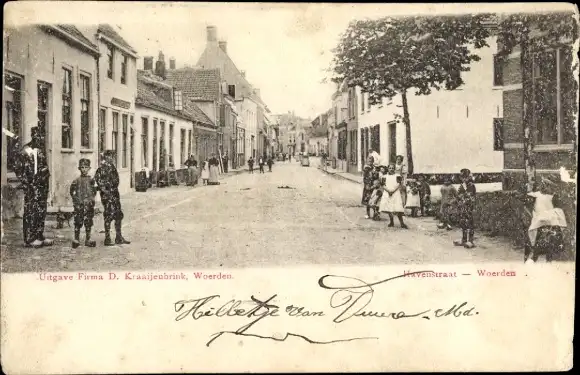 Uitgave Firma D. Kraaijenbrink, Woerden.
Havenstraat — Woerden
Hilletje van Duure, Md.